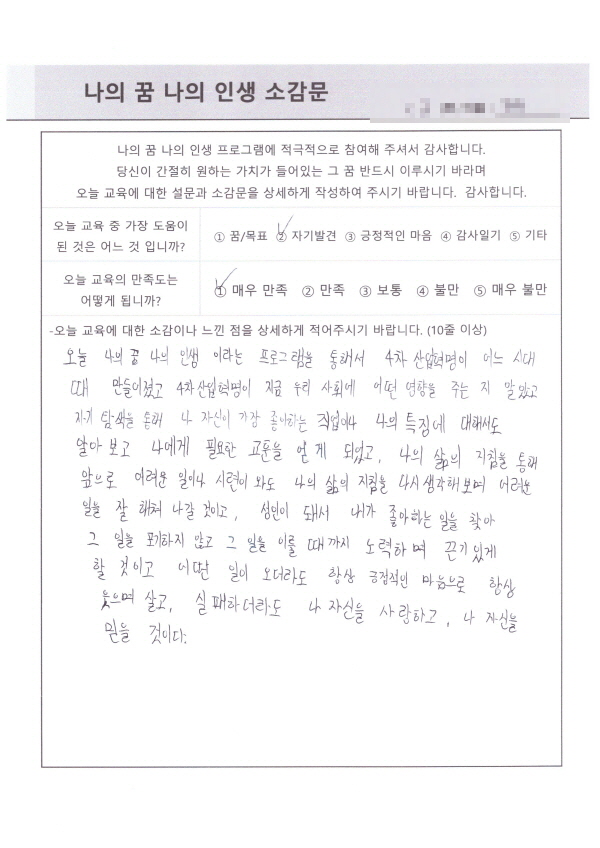 나의 꿈 나의 인생 소감문
나의 꿈 나의 인생 프로그램에 적극적으로 참여해 주셔서 감사합니다.
당신이 간절히 원하는 가치가 들어있는 그 꿈 반드시 이루시기 바라며
오늘 교육에 대한 설문과 소감문을 상세하게 작성하여 주시기 바랍니다. 감사합니다.
오늘 교육 중 가장 도움이
된 것은 어느 것 입니까?
① 꿈/목표 ② 자기발견 ③ 긍정적인 마음 ④ 감사일기 ⑤ 기타
오늘 교육의 만족도는
어떻게 됩니까?
① 매우 만족 ② 만족 ③ 보통 ④ 불만 ⑤ 매우 불만
-오늘 교육에 대한 소감이나 느낀 점을 상세하게 적어주시기 바랍니다. (10줄 이상)
오늘 나의 꿈 나의 인생 이라는 프로그램을 통해서 4차 산업혁명이 어느 시대
때 만들어졌고 4차 산업혁명이 지금 우리 사회에 어떤 영향을 주는 지 알았고
자기 탐색을 통해 나 자신이 가장 좋아하는 직업이나 나의 특징에 대해서도
알아 보고 나에게 필요한 교훈을 얻게 되었고, 나의 삶의 지침을 통해
앞으로 어려운 일이나 시련이 와도 나의 삶의 지침을 다시 생각해 보며 어려운
일을 잘 해쳐 나갈 것이고, 성인이 돼서 내가 좋아하는 일을 찾아
그 일을 포기하지 않고 그 일을 이룰 때 까지 노력하며 끈기 있게
할 것이고 어떤 일이 오더라도 항상 긍정적인 마음으로 항상
웃으며 살고, 실패하더라도 나 자신을 사랑하고, 나 자신을
믿을 것이다.